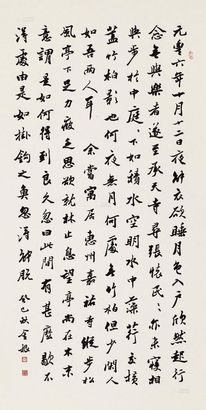 元豐六年十月十二日夜解衣欲睡月色入户欣然起行
念無與樂者遂至承天寺尋張懷民〻亦未寢相
與步於中庭〻下如積水空明水中藻荇交橫
蓋竹柏影也何夜無月何處無竹柏但少閑人
如吾兩人耳 余嘗寓居惠州嘉祐寺縱步松
風亭下足力疲乏思欲就林止息望亭尚在木末
意謂是如何得到良久忽曰此間有甚麼歇不
得處由是如掛鈎之魚忽得解脫 癸巳秋